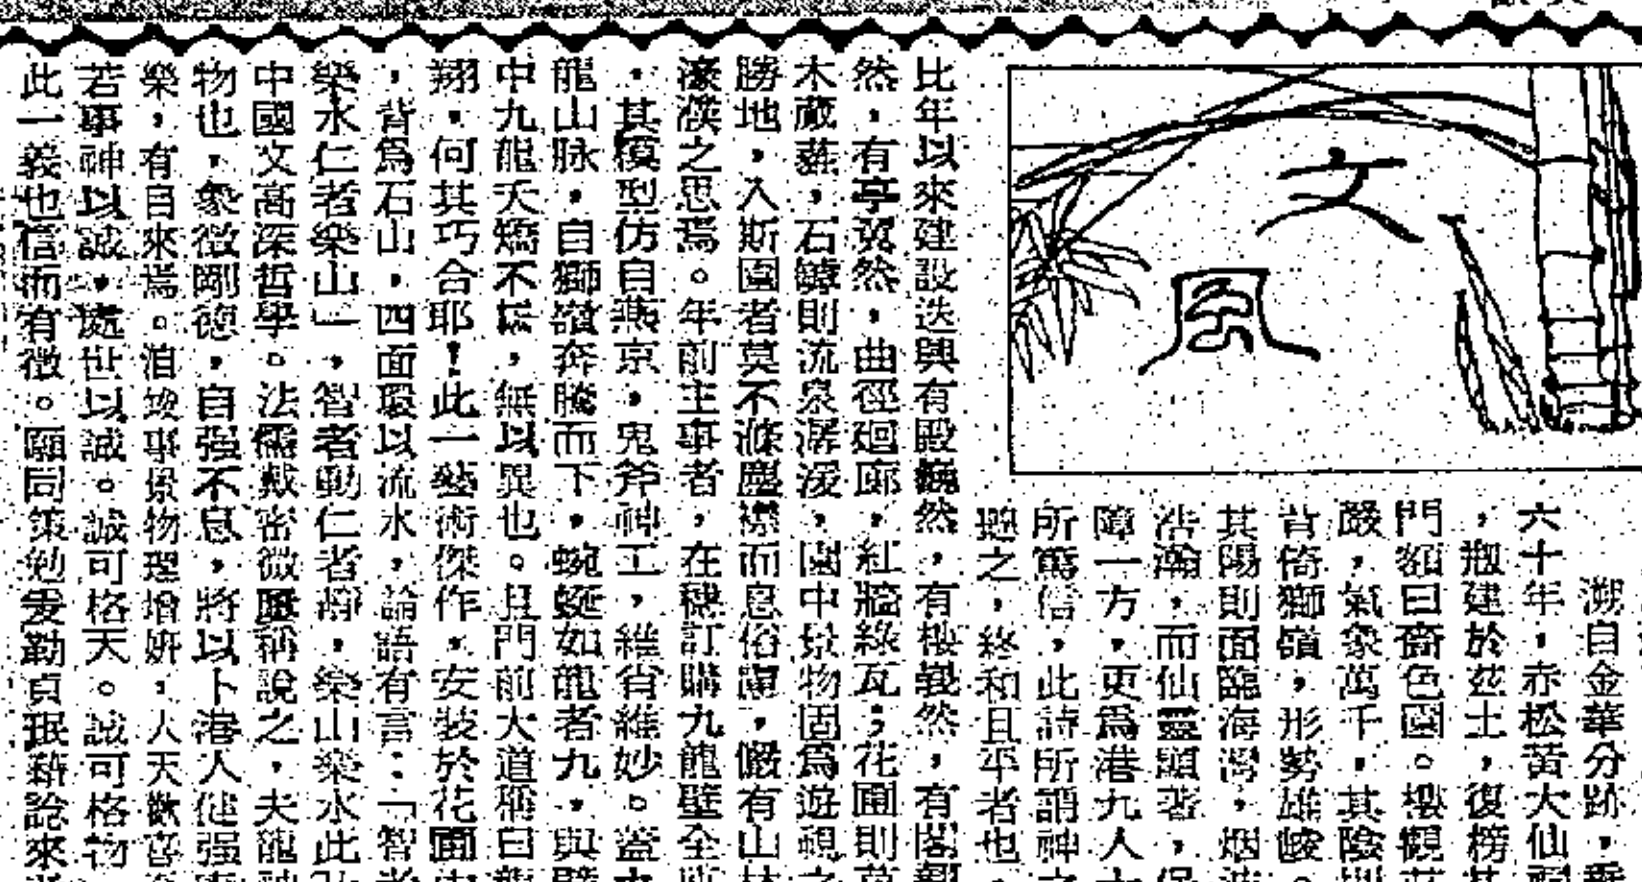 文風
溯自金華分跡，垂
六十年，赤松黃大仙祠
，剏建於茲土，復榜其
門額曰嗇色園。樓觀莊
嚴，氣象萬千，其陰則
背倚獅嶺，形勢雄峻。
其陽則面臨海灣，烟波
浩瀚，而仙靈顯著，保
障一方，更爲港九人士
所篤信，此詩所謂神之
聽之，終和且平者也。
比年以來建設迭興有殿巍然，有樓峩然，有閣翱
然，有亭翼然，曲徑廻廊，紅牆綠瓦；花圃則草
木葳蕤，石罅則流泉潺湲，園中景物固爲遊覌之
勝地，入斯園者莫不滌塵襟而息俗慮，儼有山林
濠濮之思焉。年前主事者，在穗訂購九龍壁全
，其模型仿自燕京，鬼斧神工，維肖維妙。蓋
龍山脉，自獅嶺奔騰而下，蜿蜒如龍者九，與壁
中九龍夭矯不羣，無以異也。且門前大道稱曰龍
翔，何其巧合耶！此一藝術傑作，安裝於花園
，背爲石山，四面環以流水，論語有言：「智者
樂水仁者樂山」，智者動仁者靜，樂山樂水此
中國文高深哲學。法儒戴密微盛稱說之，夫龍神
物也，象徵剛德，自强不息，將以卜港人他强
樂，有自來焉。洎竣事景物理增妍，人天歡喜
若事神以誠，處世以誠。誠可格天。誠可格物
此一義也信而有徵。願同策勉爰勒貞珉藉諗來